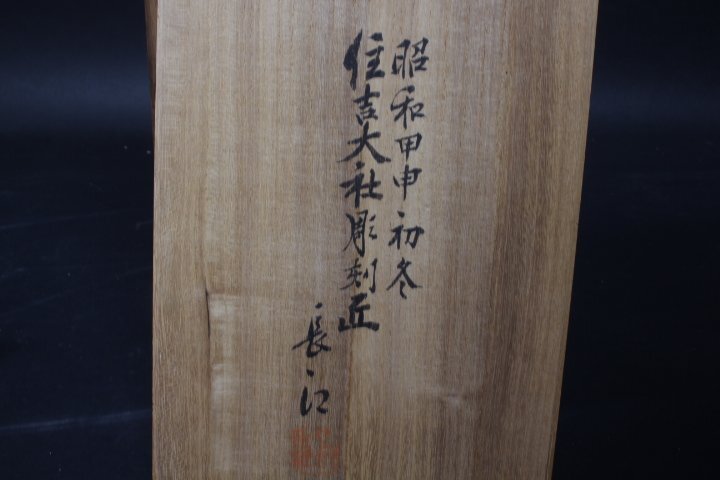 昭和甲申初冬
住吉大社彫刻匠
長江